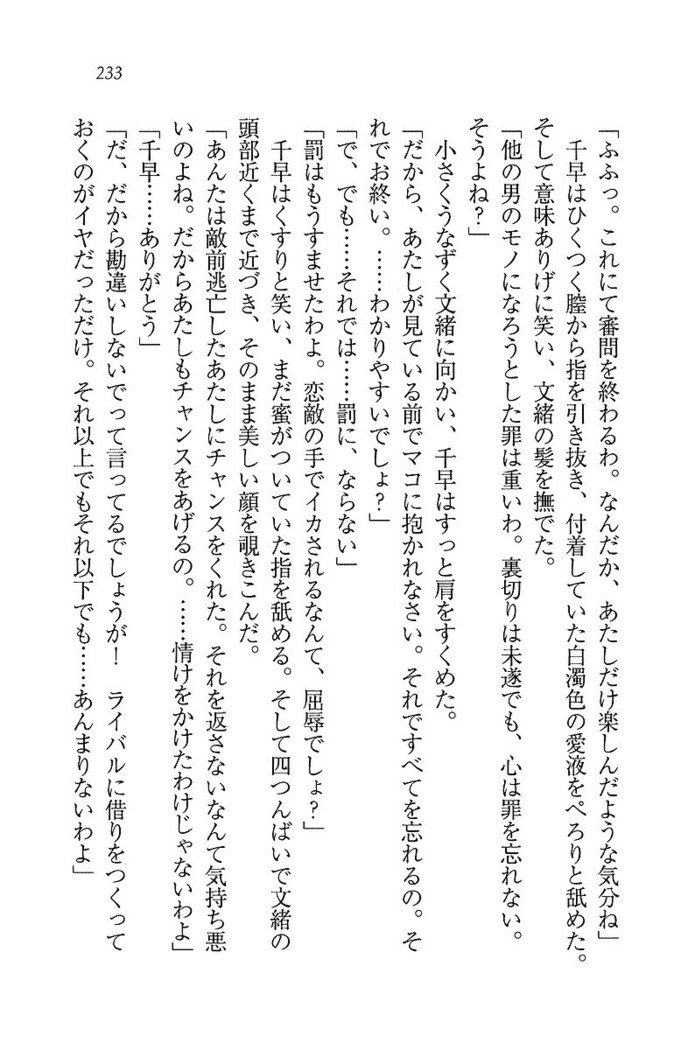 233
「ふふっ。これにて審問を終わるわ。なんだか、あたしだけ楽しんだような気分ね」
　千早はひくつく膣から指を引き抜き、付着していた白濁色の愛液をぺろりと舐めた。
そして意味ありげに笑い、文緒の髪を撫でた。
「他の男のモノになろうとした罪は重いわ。裏切りは未遂でも、心は罪を忘れない。
そうよね？」
　小さくうなずく文緒に向かい、千早はすっと肩をすくめた。
「だから、あたしが見ている前でマコに抱かれなさい。それですべてを忘れるの。そ
れでお終い。……わかりやすいでしょ？」
「で、でも……それでは……罰に、ならない」
「罰はもうすませたわよ。恋敵の手でイカされるなんて、屈辱でしょ？」
　千早はくすりと笑い、まだ蜜がついていた指を舐める。そして四つんばいで文緒の
頭部近くまで近づき、そのまま美しい顔を覗きこんだ。
「あんたは敵前逃亡したあたしにチャンスをくれた。それを返さないなんて気持ち悪
いのよね。だからあたしもチャンスをあげるの。……情けをかけたわけじゃないわよ」
「千早……ありがとう」
「だ、だから勘違いしないでって言ってるでしょうが！　ライバルに借りをつくって
おくのがイヤだっただけ。それ以上でもそれ以下でも……あんまりないわよ」